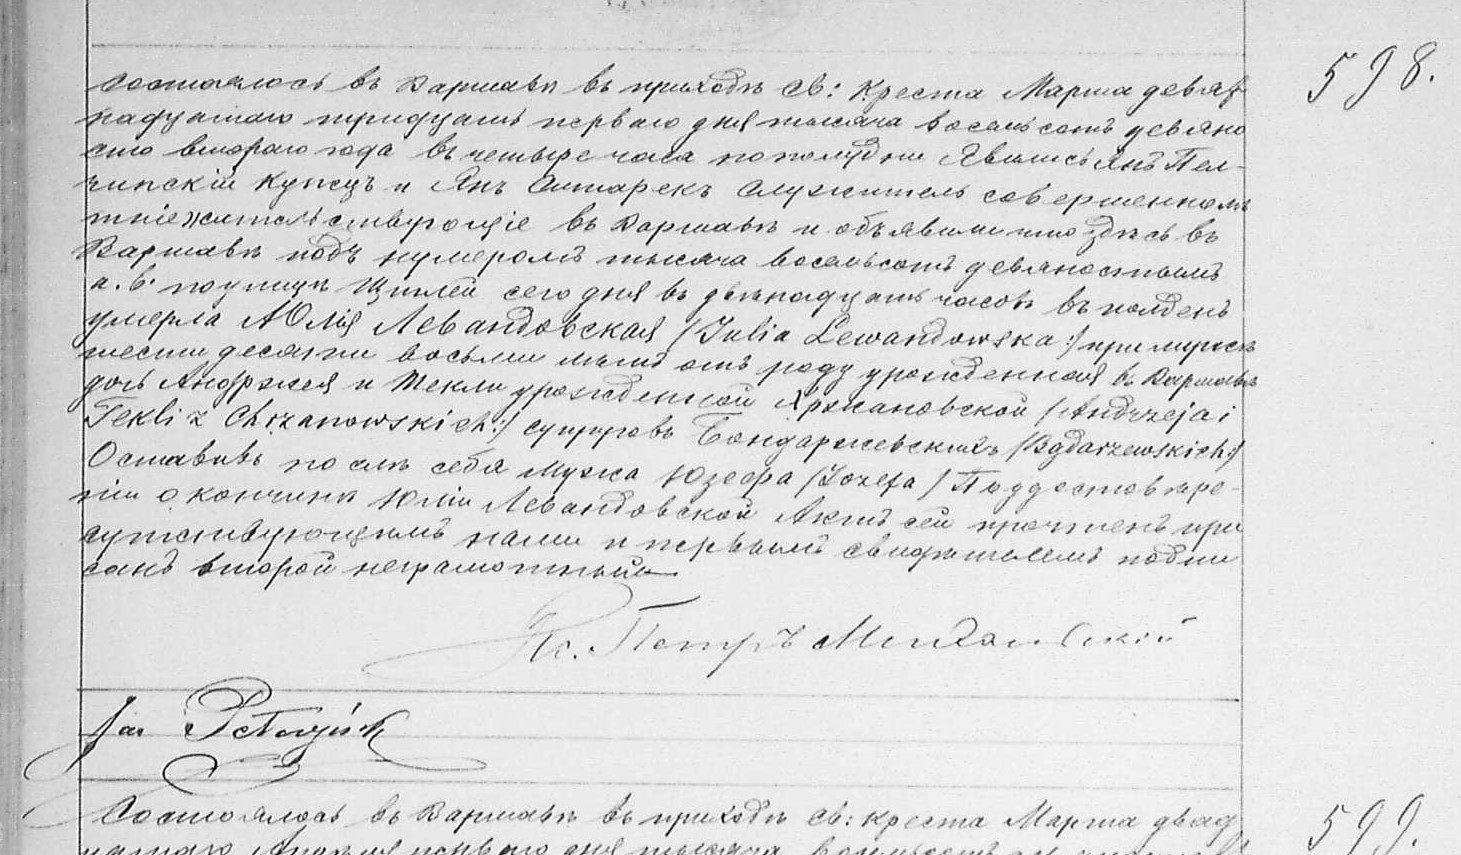 598.
Состоялось въ Варшавѣ въ приходѣ Св: Креста Марта девят
надцатаго тридцать перваго дня тысяча восемьсотъ девяно
сто втораго года въ четыре часа по полудни Явились Янъ Пел-
чинскій Купецъ и Янъ служитель совершенно
лѣтніе жительствующіе въ Варшавѣ и объявили что здѣсь въ
Варшавѣ подъ нумеромъ тысяча восемьсотъ девяностымъ
по улицѣ сего дня въ двѣнадцать часовъ въ полдень
умерла Юлія Левандовская /Julia Lewandowska:/ при мужѣ
шестидесяти восьми лѣтъ отъ роду урожденная въ Варшавѣ
дочь Андржея и Текли урожденной Хржановской /Andrzeja i
Tekli z Chrzanowskich:/ супруговъ Бондаржевскихъ /Bądarzewskich:/
Оставивъ послѣ себя мужа Юзефа /Józefa/ По удостовѣре-
ніи о кончинѣ Юліи Левандовской Актъ сей прочтенъ при
сутствующимъ нами и первымъ свидѣтелемъ подпи
санъ второй неграмотный
Кс. Петръ
Jan
599.
Состоялось въ Варшавѣ въ приходѣ Св: Креста Марта двад
цатаго Апрѣля перваго дня тысяча восемьсотъ